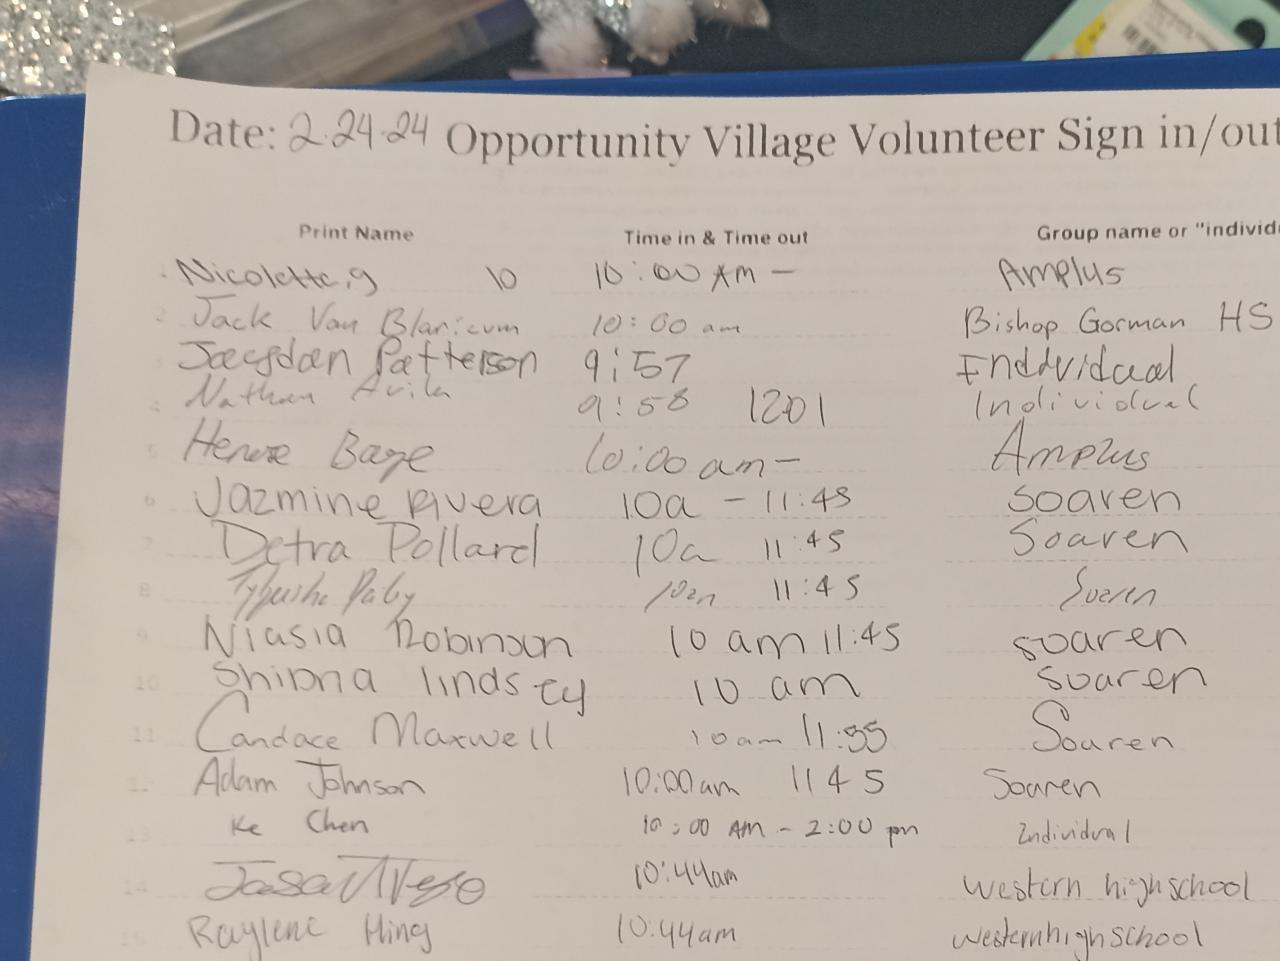 Date: 2.24.24 Opportunity Village Volunteer Sign in/out
Print Name Time in & Time out Group name or "individ
1 Nicolette, g 10 10:00 AM – Amplus
2 Jack Van Blaricum 10:00 am Bishop Gorman HS
3 Patterson 9:57 Inddvidual
4 Nathan Avila 9:58 1201 Individual
5 10:00 am – Amplus
6 Jazmine Rivera 10a – 11:45 Soaren
7 Detra Pollard 10a 11:45 Soaren
8 11:45 Soaren
9 Niasia Robinson 10 am 11:45 soaren
10 Shibna lindsey 10 am soaren
11 Candace Maxwell 10am 11:55 Soaren
12 Adam Johnson 10:00am 1145 Soaren
13 Ke Chen 10:00 AM – 2:00 pm Individual
14 10:44am Western high school
15 Raylene Hing 10:44am western high school